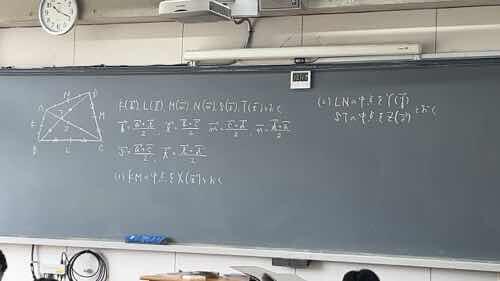 N
D
A
K
M
B
L
C
K(k⃗), L(l⃗), M(m⃗), N(n⃗), S(s⃗), T(t⃗)とおく
k⃗ = (a⃗+b⃗)/2, l⃗ = (b⃗+c⃗)/2, m⃗ = (c⃗+d⃗)/2, n⃗ = (d⃗+a⃗)/2
s⃗ = (a⃗+c⃗)/2, t⃗ = (b⃗+d⃗)/2
(1) KMの中点をX(x⃗)とおく
(2) LNの中点をY(y⃗)
STの中点をZ(z⃗) とおく